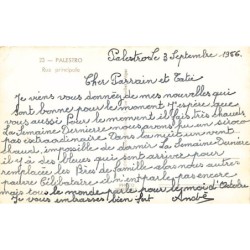 22 — PALESTRO
Rue principale
Palestro le 3 Septembre 1956.
Cher Parrain et Tati
Je viens vous donnér de mes nouvelles qui
sont bonne pour le moment J'espère que
vous aussi Pour le moment il fais très chauds
La Semaine Dernière nous avons peu un siroco
pas extraordinaire Dans la nuit un vent
chaud, impossible de dormir La Semaine Dernière
il y à des bleues qui sont arrivée pour
remplacée les Pères de Famille alors nous autres
pauvre Célibataire d'ni en parle pas encore
mais tout le monde partir pour le moi d'Octobre
Je vous embrasses bien fort André